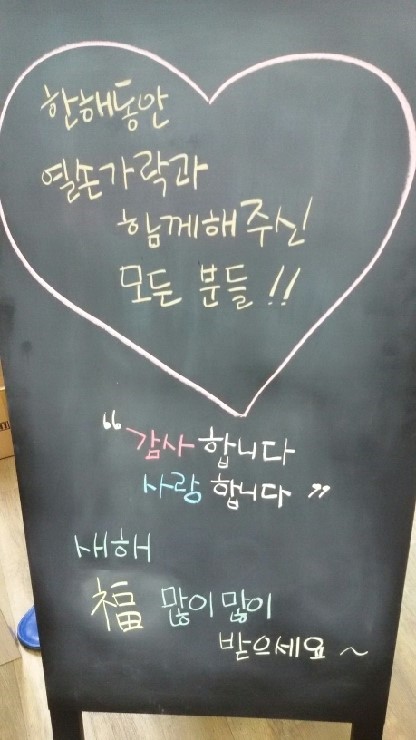 한해동안
열손가락과
함께해주신
모든 분들!!
“감사합니다
사랑합니다”
새해
福 많이많이
받으세요~